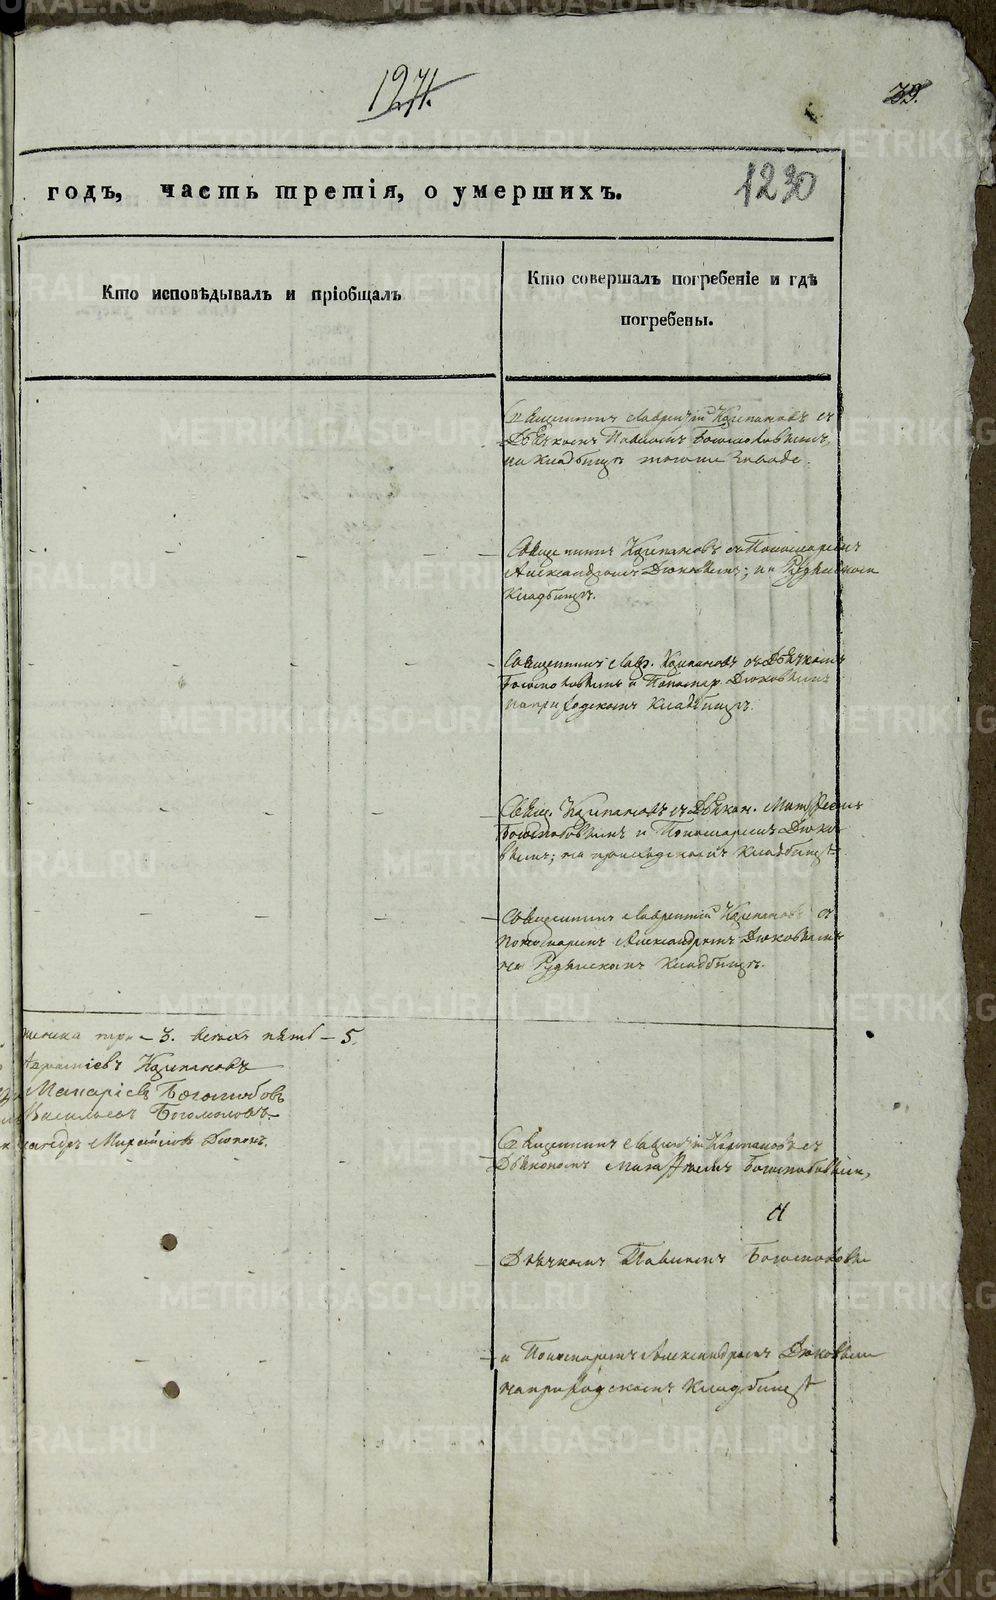 1271.
39.
годъ, часть третія, о умершихъ.
1230
Кто исповѣдывалъ и пріобщалъ
Кто совершалъ погребеніе и гдѣ
погребены.
Священникъ Лаврентій Карпановъ съ
Дьячкомъ Павломъ Богомоловымъ,
на кладбищѣ
Священникъ Карпановъ съ Пономаремъ
Александромъ Дюковымъ; на Руднискомъ
кладбищѣ.
Священникъ Лавр. Карпановъ съ Дьячкомъ
Богомоловымъ и Пономар. Дюковымъ
на приходскомъ кладбищѣ.
Свящ. Карпановъ съ Діакон.
Боголюбовымъ и Пономаремъ Дюко
вымъ; на приходскомъ кладбищѣ
Священникъ Лаврентій Карпановъ съ
Пономаремъ Александромъ Дюковымъ
на Рудянскомъ кладбищѣ.
– 3. всехъ пять – 5.
Карпановъ
Макаріевъ Боголюбовъ
Васильевъ Богомоловъ.
Михайловъ Дюковъ.
Священникъ Лаврентій Карпановъ съ
Діякономъ Боголюбовымъ,
И
Дьячкомъ Павломъ Богомоловы
и Пономаремъ Александромъ Дюковым
на приходскомъ кладбищѣ
METRIKI.GASO-URAL.RU